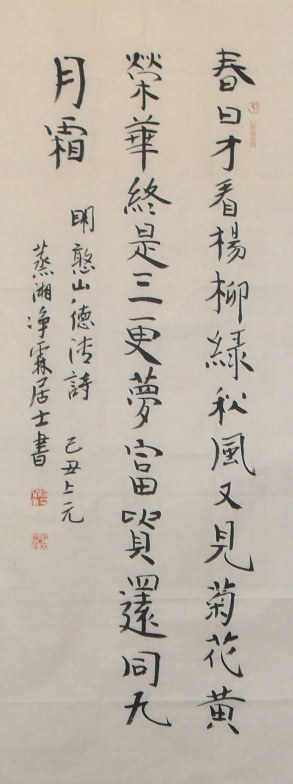 春日才看楊柳綠秋風又見菊花黃
榮華終是三更夢富貴還同九
月霜
明憨山德清詩 己丑上元
蒸湘净霖居士書